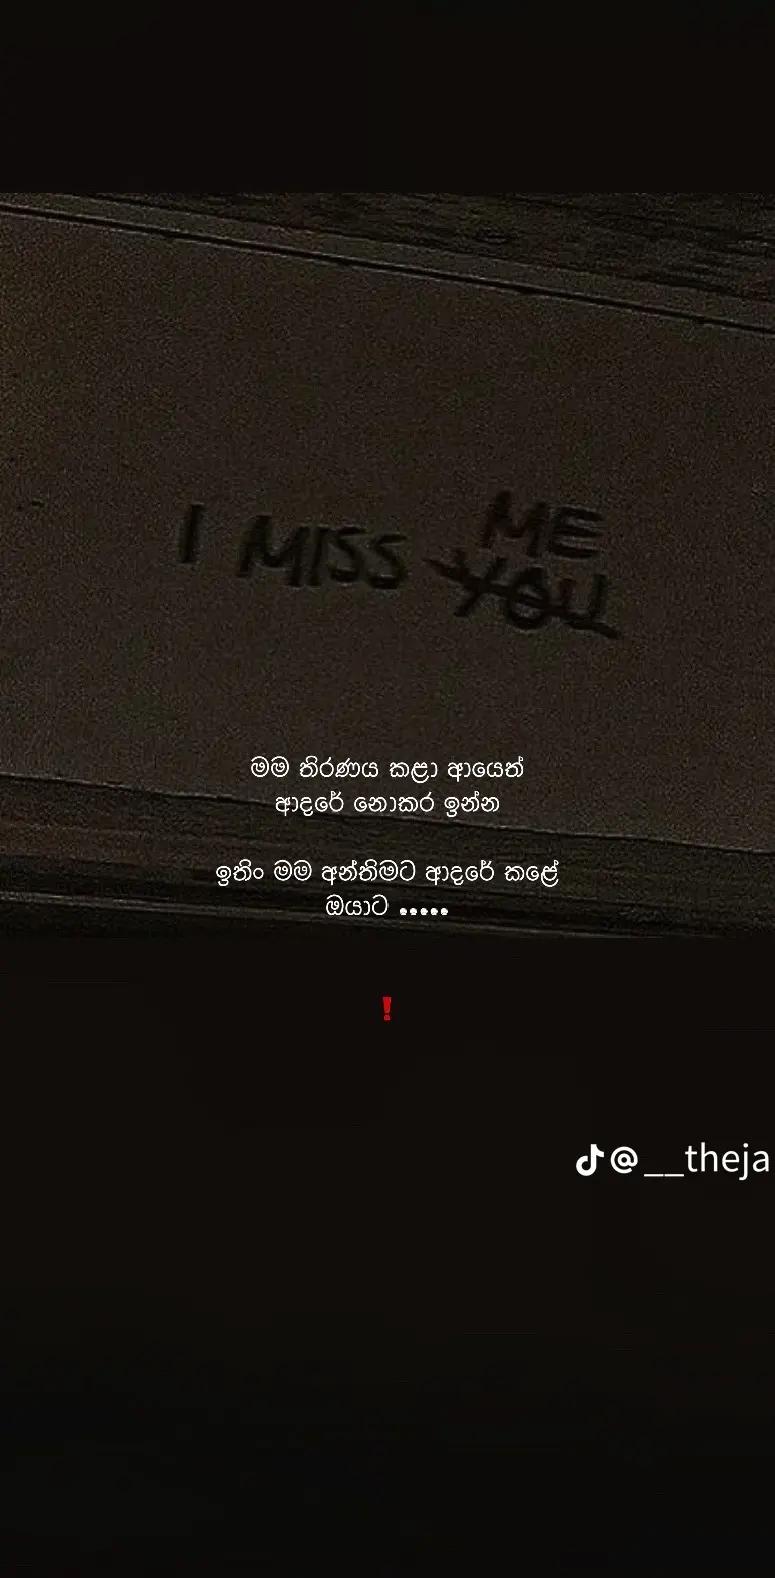 ME
I MISS YOU
මම තිරණය කළා ආයෙත්
ආදරේ නොකර ඉන්න
ඉතිං මම අන්තිමට ආදරේ කළේ
ඔයාට .....
❗
@__theja